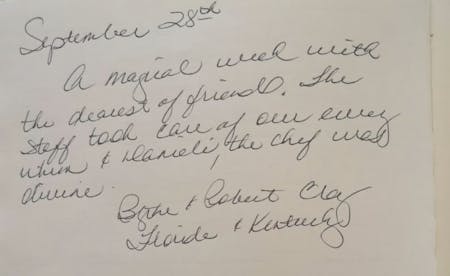 September 28th
A magical week with
the dearest of friends. The
Staff took care of our every
whim & Danieli, the chef was
divine.
& Robert Clay
Floride & Kentucky